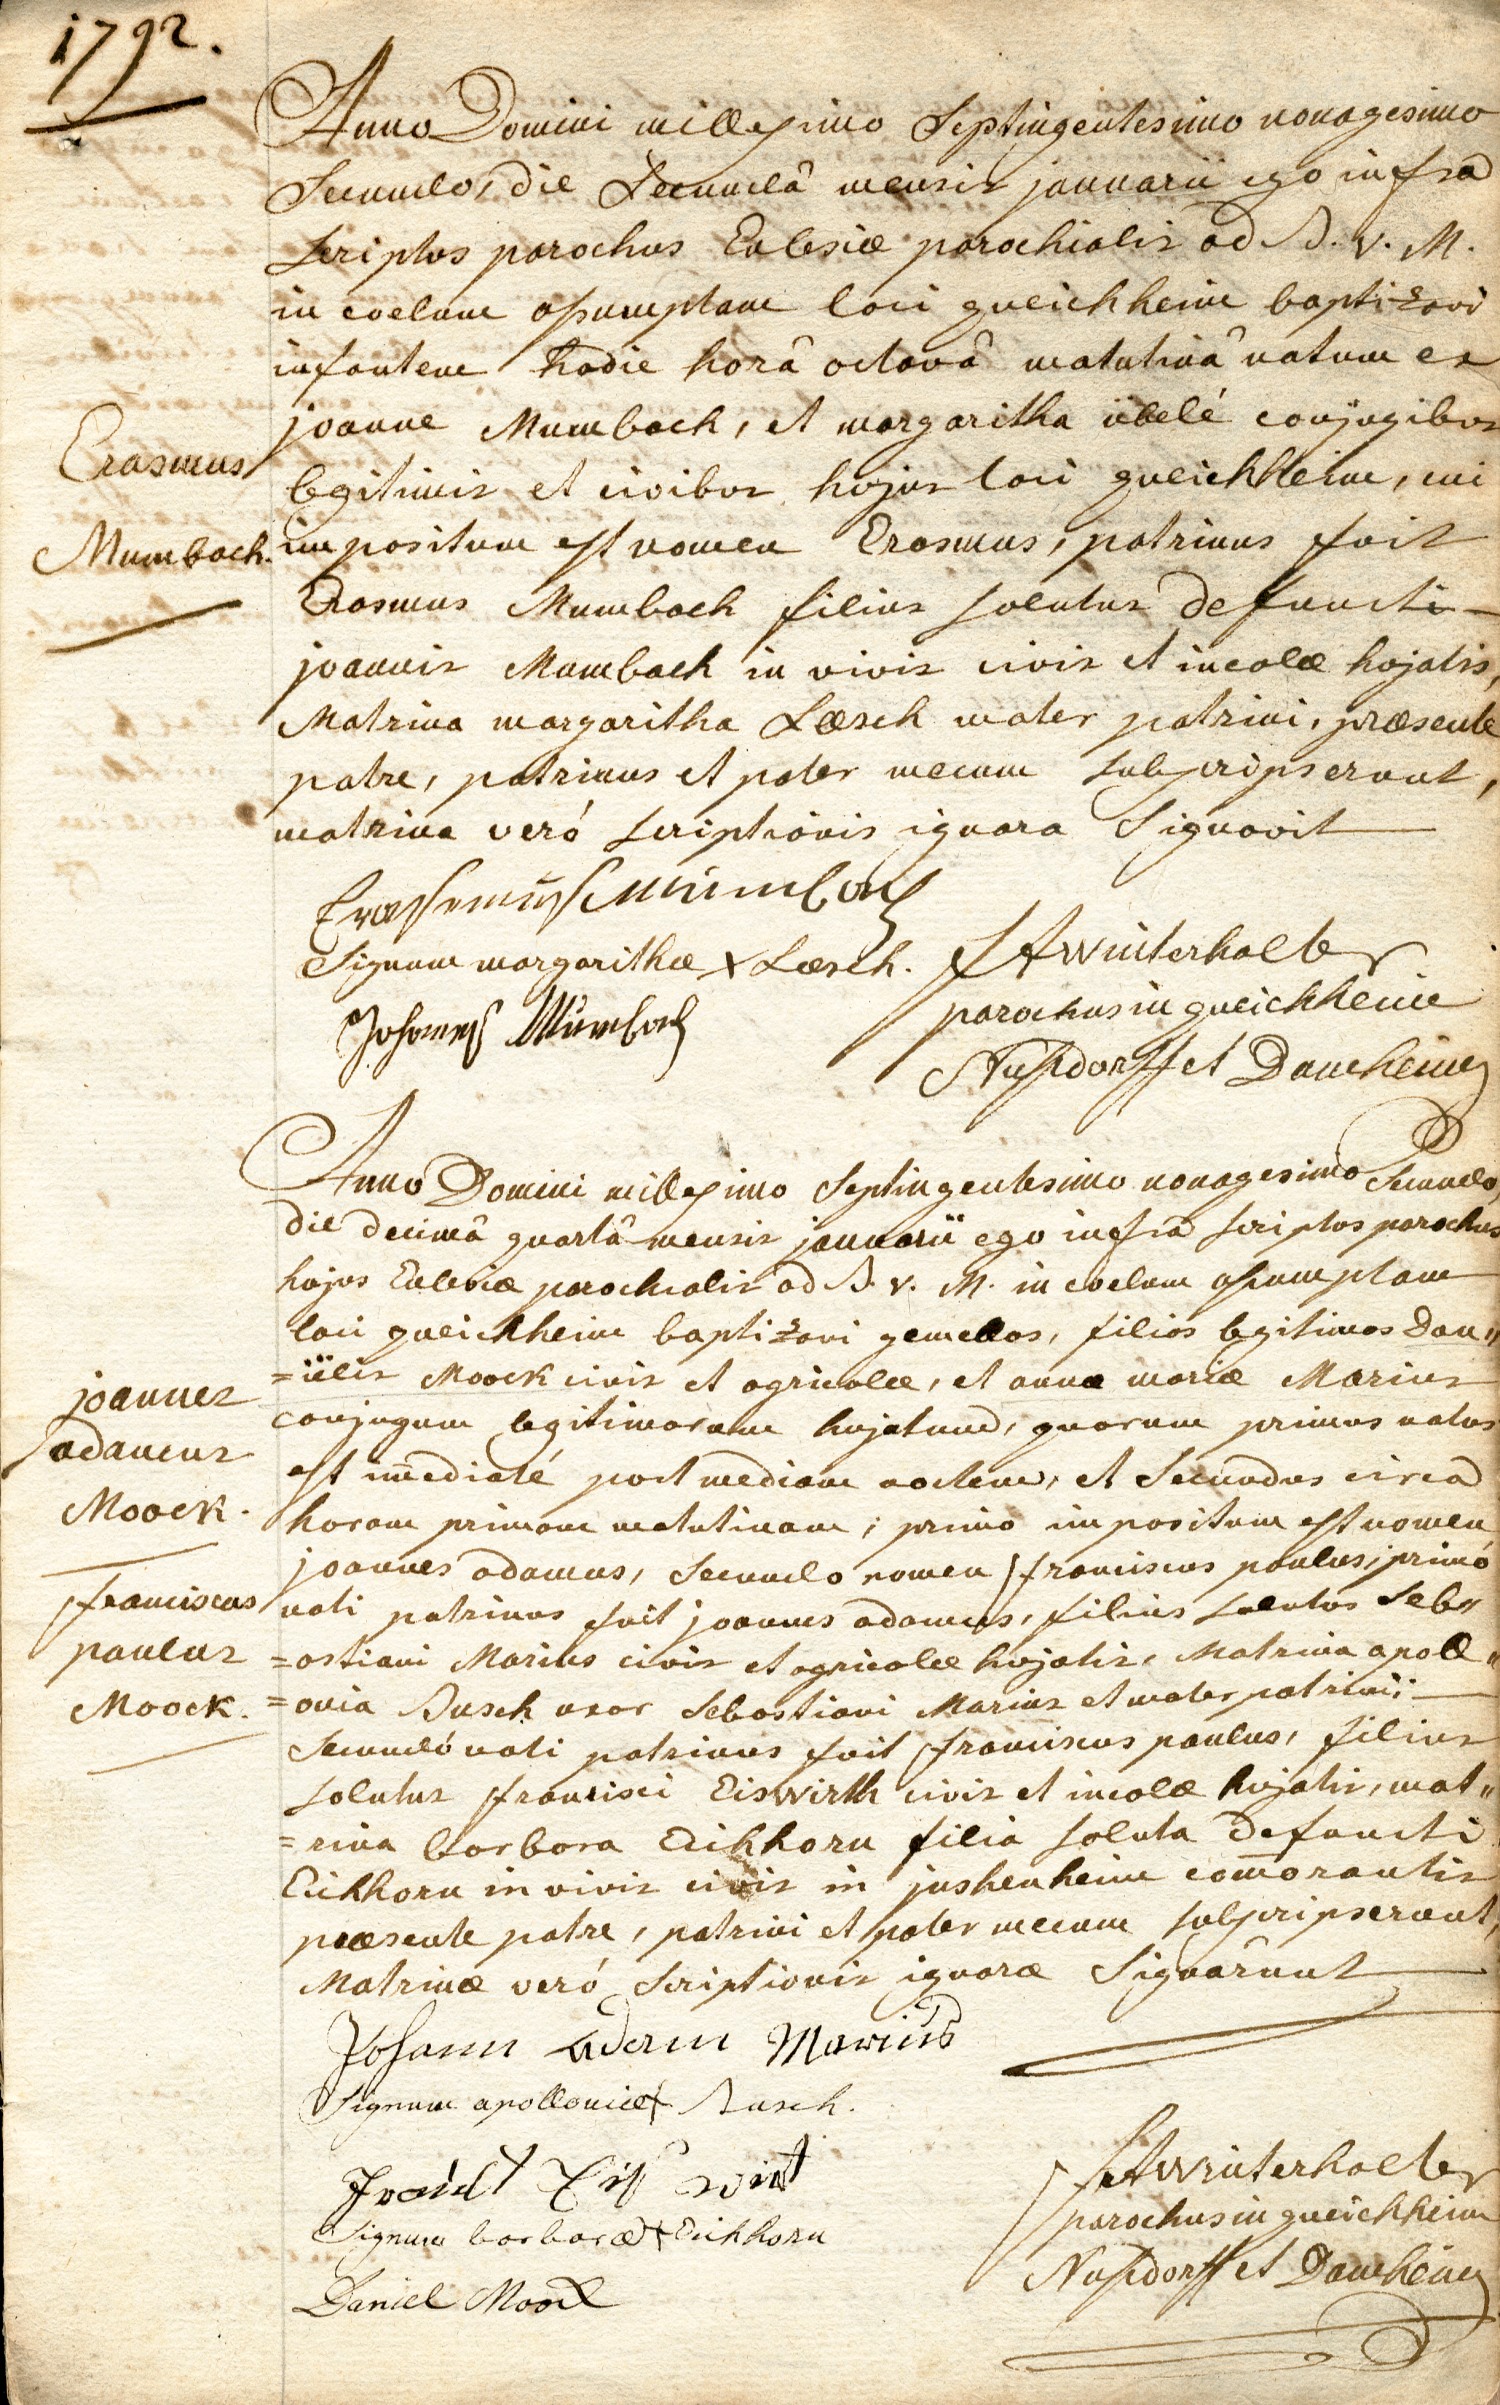 1792.
Anno Domini millesimo Septingentesimo nonagesimo
Secundo, die Secundâ mensis januarii ego infrà
scriptus parochus Eclesiæ parochialis ad B. v. M.
in coelum assumptam loci queichheim baptizavi
infantem hodie horâ octavâ matutinâ natum ex
joanne Mumbach, et margaritha übelé conjugibus
legitimis et civibus hujus loci queichheim, cui
impositum est nomen Erasmus, patrinus fuit
Erasmus Mumbach filius solutus defuncti
joannis Mumbach in vivis civis et incolæ hujatis,
Matrina margaritha Læsch mater patrini, præsente
patre, patrinus et pater mecum subscripserunt,
matrina veró scriptionis ignara Signavit
Erasmus
Mumbach.
Erassmuss Mümbach
Signum margarithæ x Læsch.
Johannes Mümbach
FA winterhalter
parochus in queichheim
Nussdorff et Damheim
Anno Domini millesimo Septingentesimo nonagesimo Secundo
die decimâ quartâ mensis januarii ego infrà scriptus parochus
hujus Eclesiæ parochialis ad B. v. M. in coelum assumptam
loci queichheim baptizavi gemellos, filios legitimos Dan"
=iëlis Moock civis et agricolæ, et annæ mariæ Marius
conjugum legitimorum hujatum, quorum primus natus
est im̄ediaté post mediam noctem, et Secundus circà
horam primam matutinam; primo impositum est nomen
joannes adamus, Secundo nomen franciscus paulus; primó
nati patrinus fuit joannes adamus, filius solutus Seb"
=astiani Marius civis et agricolæ hujatis, Matrina apoll"
=onia Busch uxor Sebastiani Marius et mater patrini;
Secundó nati patrinus fuit franciscus paulus, filius
solutus francisci Eiswirth civis et incolæ hujatis, mat"
=rina barbara Eichhorn filia soluta defuncti
Eichhorn in vivis civis in jushenheim com̄orantis
præsente patre, patrini et pater mecum subscripserunt,
Matrinæ veró Scriptionis ignaræ Signârunt
joannes
adamus
Moock.
franciscus
paulus
Moock.
Johann Adam Marius
Signum apolloniæ x Busch.
Eiswirt
Signum barbaræ x Eichhorn
Daniel Moock
FA winterhalter
parochus in queichheim
Nussdorff et Damheim